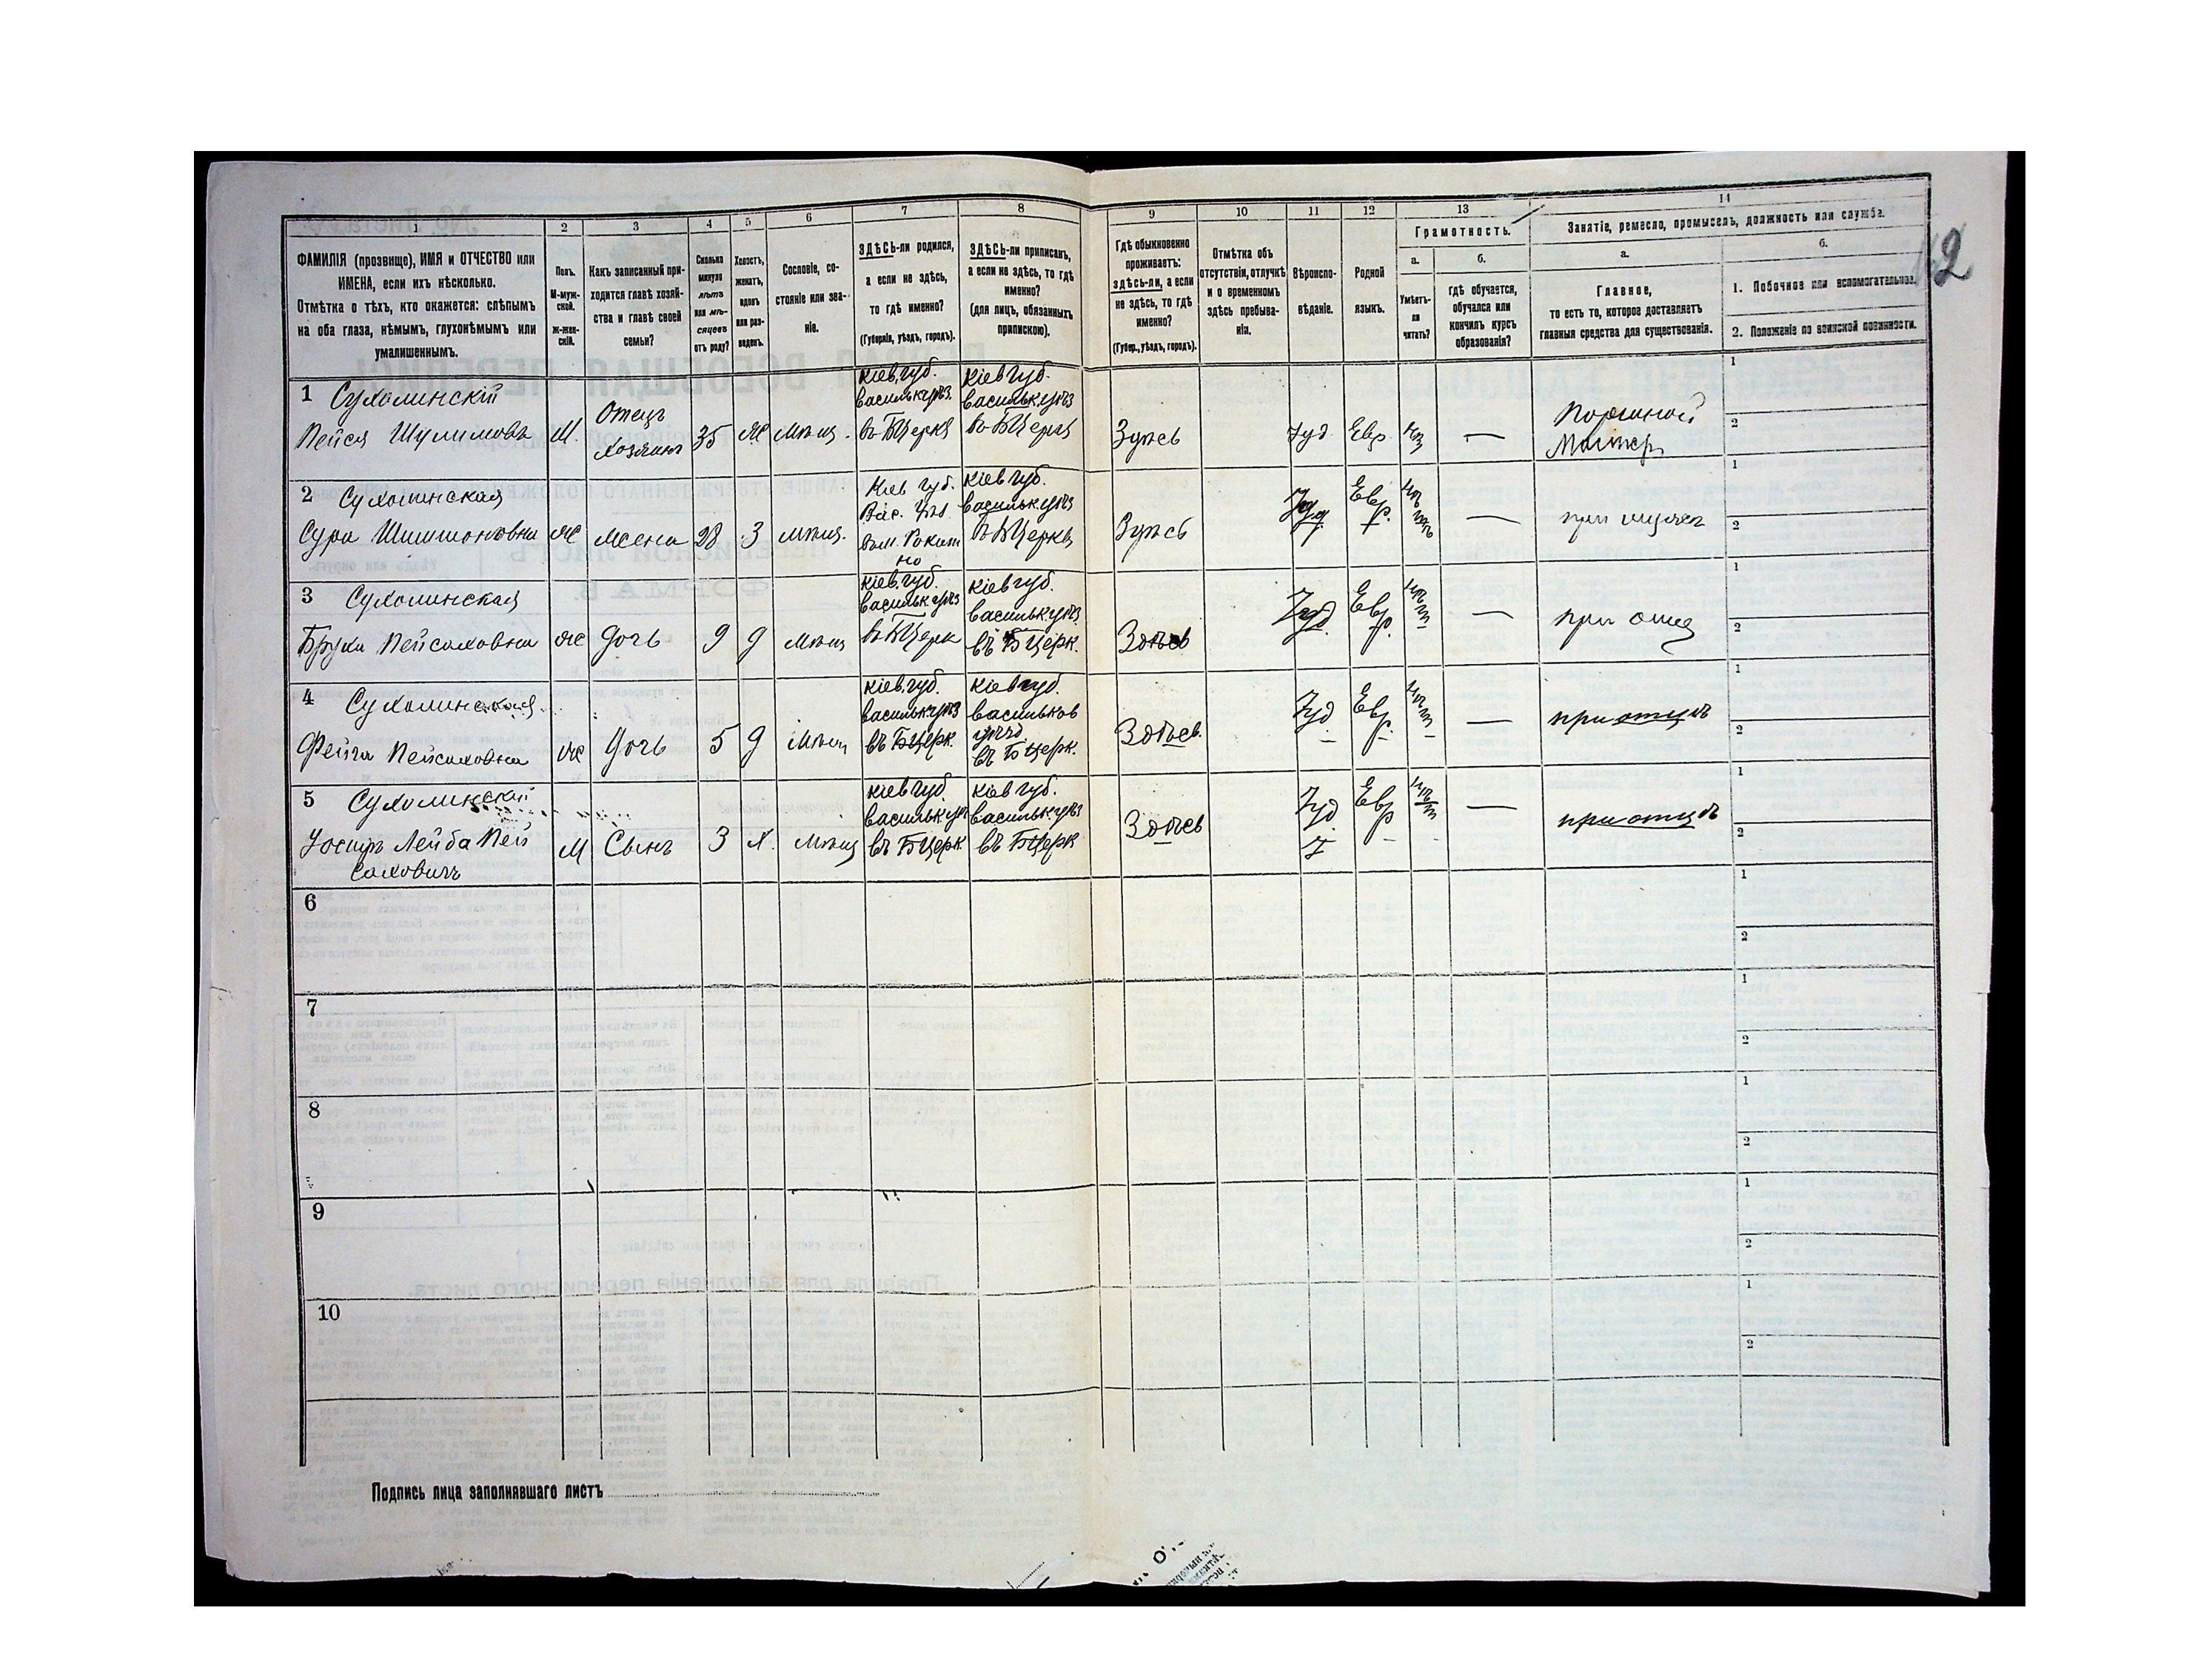 1
2
3
4
5
6
7
8
9
10
11
12
13
14
ФАМИЛІЯ (прозвище), ИМЯ и ОТЧЕСТВО или
ИМЕНА, если ихъ нѣсколько.
Отмѣтка о тѣхъ, кто окажется: слѣпымъ
на оба глаза, нѣмымъ, глухонѣмымъ или
умалишеннымъ.
Полъ.
М-муж-
ской.
ж-жен-
скій.
Какъ записанный при-
ходится главѣ хозяй-
ства и главѣ своей
семьи?
Сколько
минуло
лѣтъ
или мѣ-
сяцевъ
отъ роду?
Холостъ,
женатъ,
вдовъ
или раз-
веденъ.
Сословіе, со-
стояніе или зва-
ніе.
ЗДѢСЬ-ли родился,
а если не здѣсь,
то гдѣ именно?
(Губернія, уѣздъ, городъ).
ЗДѢСЬ-ли приписанъ,
а если не здѣсь, то гдѣ
именно?
(для лицъ, обязанныхъ
припискою).
Гдѣ обыкновенно
проживаетъ:
здѣсь-ли, а если
не здѣсь, то гдѣ
именно?
(Губер., уѣздъ, городъ).
Отмѣтка объ
отсутствіи, отлучкѣ
и о временномъ
здѣсь пребыва-
ніи.
Вѣроиспо-
вѣданіе.
Родной
языкъ.
Грамотность.
а.
Умѣетъ-
ли
читать?
б.
Гдѣ обучается,
обучался или
кончилъ курсъ
образованія?
Занятіе, ремесло, промыселъ, должность или служба.
а.
Главное,
то есть то, которое доставляетъ
главныя средства для существованія.
б.
1. Побочное или вспомогательное.
2. Положеніе по воинской повинности.
12
1 Сухолинскій
Пейся Шулимовъ
М.
Отецъ
Хозяинъ
35
Ж
Мѣщ.
Кіев. губ.
васильк. уѣз.
въ БЦеркв
Кіев губ.
васильк. уѣз
въ БЦеркв
Здѣсь
Іуд
Евр
—
Портной
Мастер
1
2
2 Сухолинская
Сура Шимшоновна
Ж
Жена
28
З
Мѣщ.
Кіев губ.
Вас. Уѣз
въ м. Рокит
но
Кіев губ.
васильк. уѣз
въ БЦеркв
Здѣсь
Іуд.
Евр.
—
при мужѣ
1
2
3 Сухолинская
Бруха Пейсаховна
Ж
Дочь
9
Д
Мѣщ
Кіев. губ.
васильк уѣз
въ БЦерк
Кіев губ.
васильк. уѣз
въ БЦерк.
Здѣсь
Іуд.
Евр.
—
при отцѣ
1
2
4 Сухолинская
Фейга Пейсаховна
Ж
Дочь
5
Д
Мѣщ
Кіев. губ.
васильк уѣз
въ БЦерк.
Кіев губ.
васильков
уѣзд
въ БЦерк.
Здѣсь.
Іуд
Евр.
—
при отцѣ
1
2
5 Сухолинскій
Іосифъ Лейба Пей
саховичъ
М
Сынъ
3
Х.
Мѣщ
Кіев губ
васильк уѣз
въ БЦерк.
Кіев губ.
васильк. уѣз
въ БЦерк
Здѣсь
Іуд
Евр
—
при отцѣ
1
2
6
1
2
7
1
2
8
1
2
9
1
2
10
1
2
Подпись лица заполнявшаго листъ